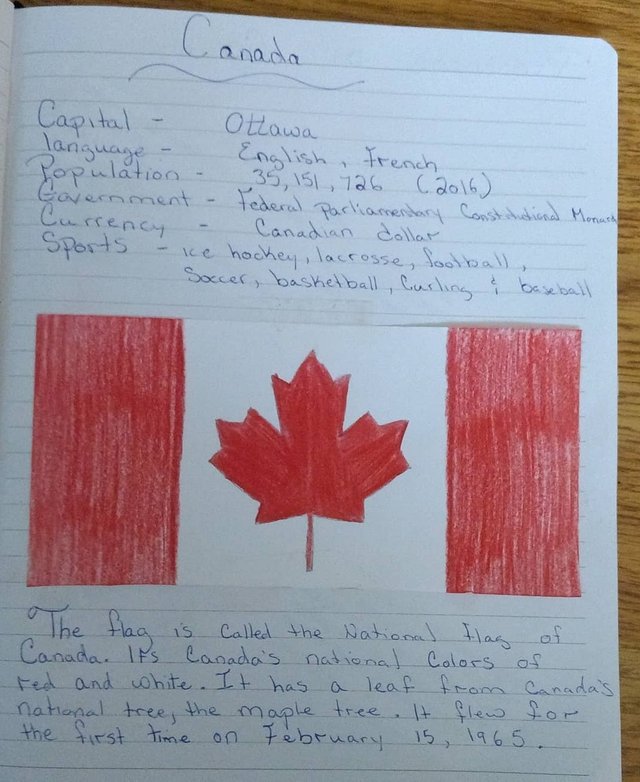 Canada
Capital - Ottawa
language - English, French
Population - 35,151,726 (2016)
Government - Federal parliamentary Constitutional Monarc
Currency - Canadian dollar
Sports - ice hockey, lacrosse, football,
Soccer, basketball, Curling & baseball
The flag is called the National Flag of
Canada. It's Canada's national Colors of
red and white. It has a leaf from Canada's
national tree, the maple tree. It flew for
the first time on February 15, 1965.